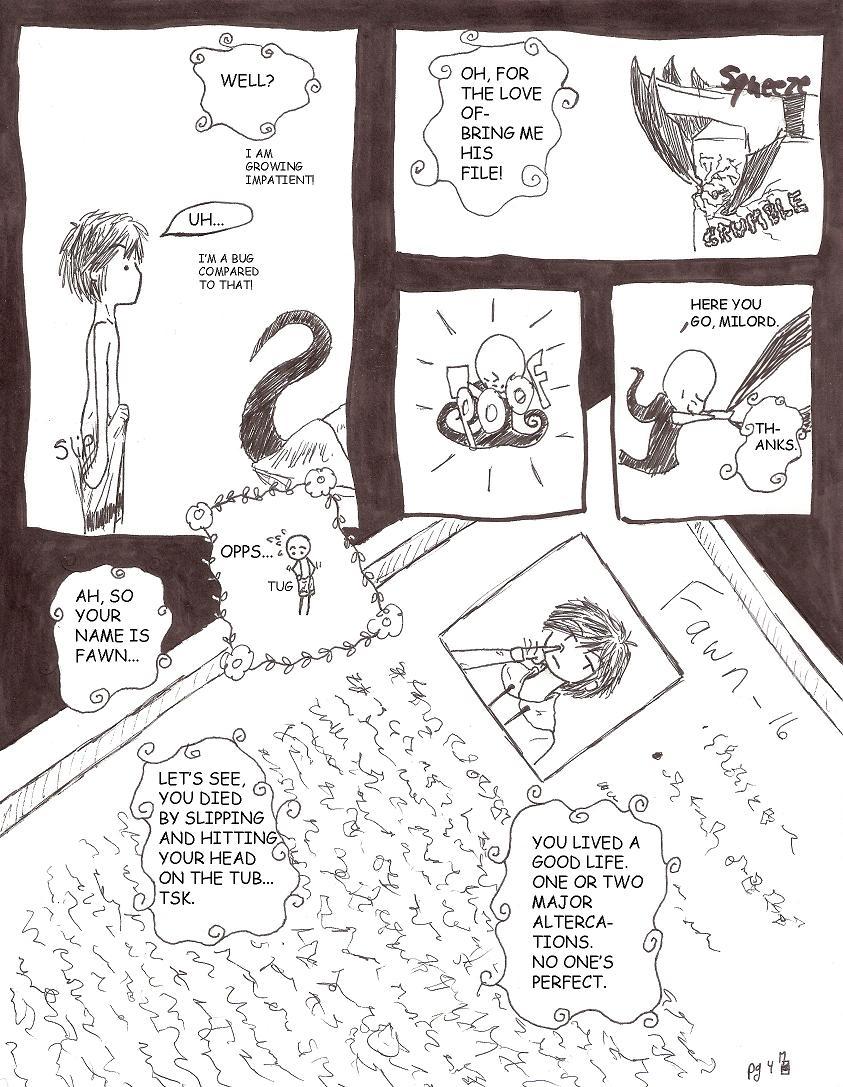 WELL?
I AM
GROWING
IMPATIENT!
UH...
I'M A BUG
COMPARED
TO THAT!
Slip
OH, FOR
THE LOVE
OF-
BRING ME
HIS
FILE!
Squeeze
CRUMBLE
POOF
HERE YOU
GO, MILORD.
TH-
ANKS.
OPPS...
TUG
AH, SO
YOUR
NAME IS
FAWN...
Fawn - 16
LET'S SEE,
YOU DIED
BY SLIPPING
AND HITTING
YOUR HEAD
ON THE TUB...
TSK.
YOU LIVED A
GOOD LIFE.
ONE OR TWO
MAJOR
ALTERCA-
TIONS.
NO ONE'S
PERFECT.
pg 4